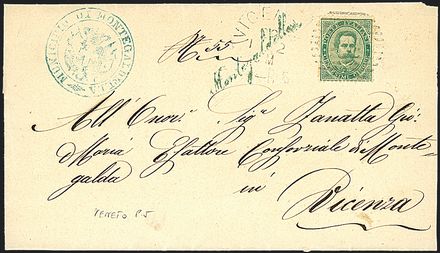 MUNICIPIO DI MONTEGALDELLA
N. 55
Montegaldella
All' Onor. Sig. Zanatta Gio:
Maria Esattore Consorziale di Monte-
galda
in
Vicenza
VENETO P.5